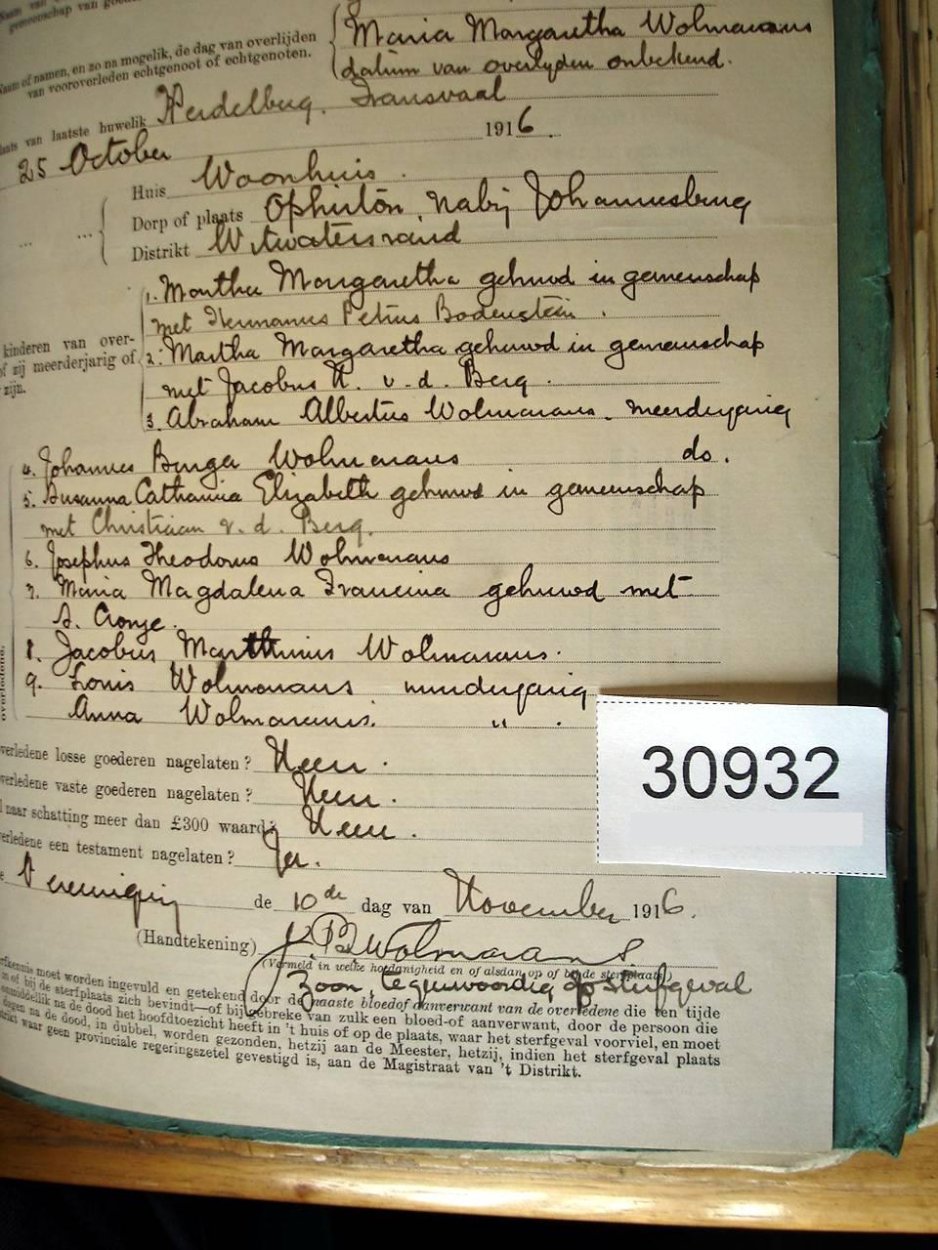 gemeenschap van
Naam of namen, en zo na mogelik, de dag van overlijden
van vooroverleden echtgenoot of echtgenoten.
Maria Margaretha Wolmarans
datum van overlyden onbekend.
van laatste huwelik Heidelberg. Transvaal
25 October 1916.
Huis Woonhuis.
Dorp of plaats Ophirton, nabij Johannesburg
Distrikt Witwatersrand
kinderen van over-
zij meerderjarig of
zijn.
1. Martha Margaretha gehuwd in gemeenschap
met Hermanus Petrus Bodenstein.
2. Martha Margaretha gehuwd in gemeenschap
met Jacobus H. v. d. Berg.
3. Abraham Albertus Wolmarans. meerderjarig
4. Johannes Burger Wolmarans do.
5. Susanna Catharina Elizabeth gehuwd in gemeenschap
met Christiaan v. d. Berg.
6. Josephus Theodorus Wolmarans
7. Maria Magdalena Francina gehuwd met
A. Cronje.
8. Jacobus Marthinus Wolmarans.
9. Louis Wolmarans minderjarig
Anna Wolmarans. " .
overledene.
overledene losse goederen nagelaten? Neen.
overledene vaste goederen nagelaten? Neen.
naar schatting meer dan £300 waard? Neen.
overledene een testament nagelaten? Ja.
Vereeniging de 10de dag van November 1916.
(Handtekening) J. B. Wolmarans
(Vermeld in welke hoedanigheid en of alsdan op of bij de sterfplaats)
Zoon, tegenwoordig op sterfgeval
moet worden ingevuld en getekend door de naaste bloedof aanverwant van de overledene die ten tijde
of bij de sterfplaats zich bevindt—of bij gebreke van zulk een bloed-of aanverwant, door de persoon die
onmiddellik na de dood het hoofdtoezicht heeft in 't huis of op de plaats, waar het sterfgeval voorviel, en moet
dagen na de dood, in dubbel, worden gezonden, hetzij aan de Meester, hetzij, indien het sterfgeval plaats
waar geen provinciale regeringszetel gevestigd is, aan de Magistraat van 't Distrikt.
30932